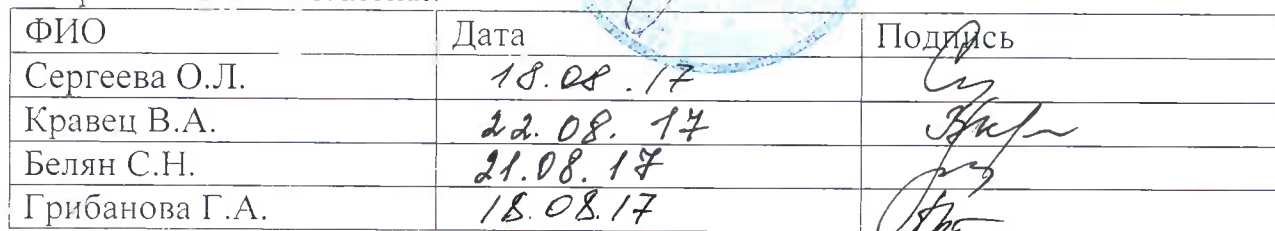 ФИО Дата Подпись
Сергеева О.Л. 18.08.17
Кравец В.А. 22.08.17
Белян С.Н. 21.08.17
Грибанова Г.А. 18.08.17